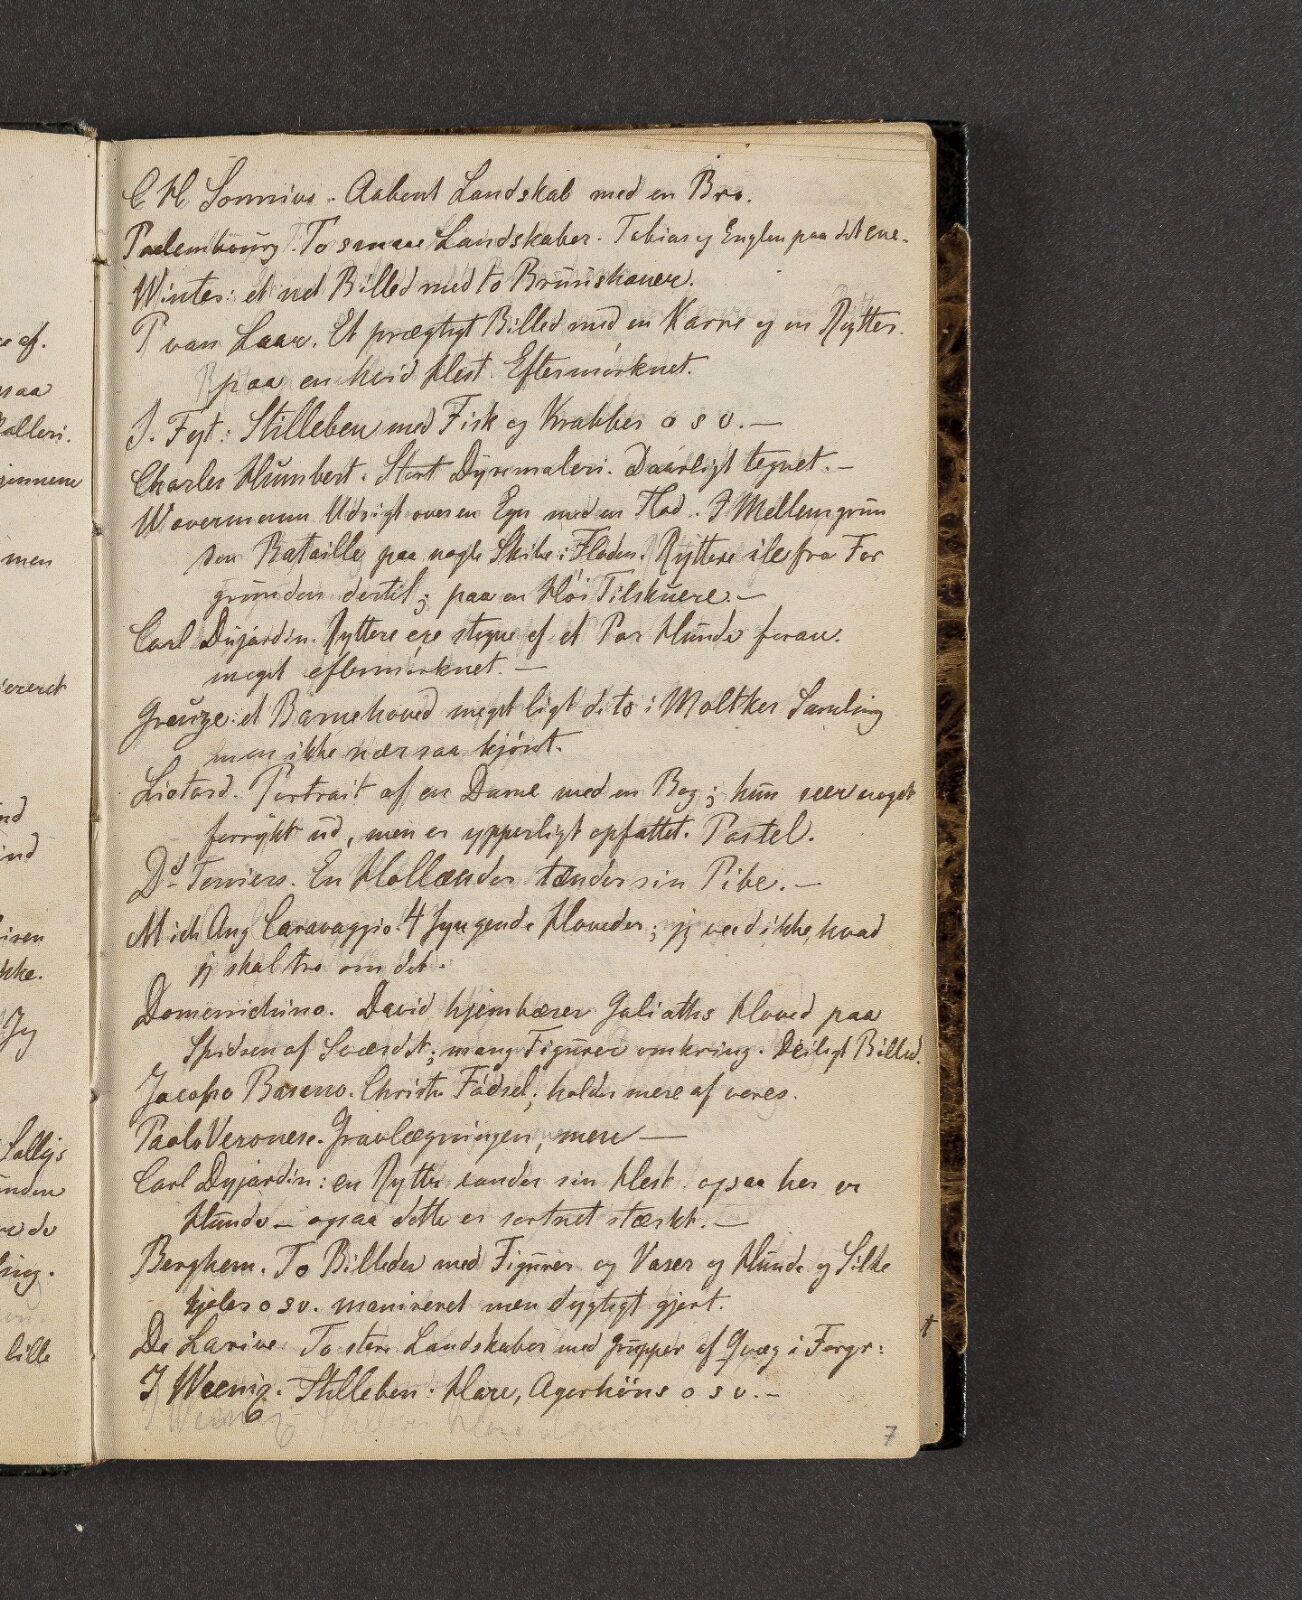 C H Sonnius. Aabent Landskab med en Bro.
Poelembourg. To smaae Landskaber. Tobias og Englen paa det ene.
Winter: et net Billed med to Bruushaner.
P van Laar. Et prægtigt Billed med en Karre og en Rytter
paa en hvid Hest. Eftermörknet.
J. Fyt: Stilleben med Fisk og Krabber o s v. —
Charles Humbert. Stort Dyremaleri. Daarligt tegnet. —
Wovermann Udsigt over en Egn med en Flod. I Mellemgrun
den Bataille paa nogle Skibe i Floden. Ryttere ile fra For
grunden dertil; paa en Höi Tilskuere. —
Carl Dujardin. Ryttere ere stegne af et Par Hunde foran.
meget eftermörknet. —
Greuze: et Barnehoved meget ligt dito i Moltkes Samling
men ikke nær saa kjönt.
Liotard. Portrait af en Dame med en Bog; hun seer noget
forrykt ud, men er ypperligt opfattet. Pastel.
Dd Teniers. En Hollænder tænder sin Pibe. —
Mich Ang Caravaggio. 4 syngende Hoveder; jeg veed ikke, hvad
jeg skal tro om det.
Domenichino. David hjembærer Goliaths Hoved paa
Spidsen af Sværdet; mange Figurer omkring. Deiligt Billed.
Jacopo Basano. Christi Födsel; holder mere af vores.
Paolo Veronese. Gravlægningen, mere —
Carl Dujardin: en Rytter vander sin Hest ogsaa her er
Hunde — ogsaa dette er sortnet stærkt. —
Berghem. To Billeder med Figurer og Vaser og Hunde og Silke
kjoler o s v. manireret men dygtigt gjort.
De Larive. To store Landskaber med Grupper af Qvæg i Forgr:
J Weenix. Stilleben. Hare, Agerhöns o s v. —
7